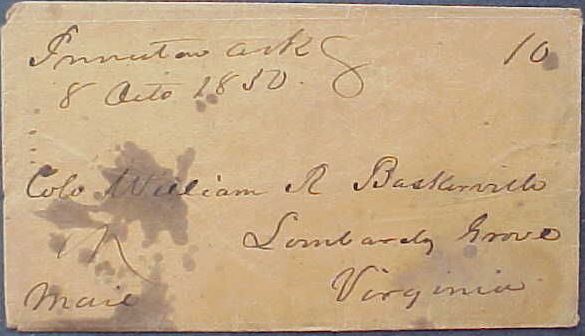 Ark 10
8 Octo 1850.
Colo William R Baskerville
Lombardy Grove
Mail Virginia